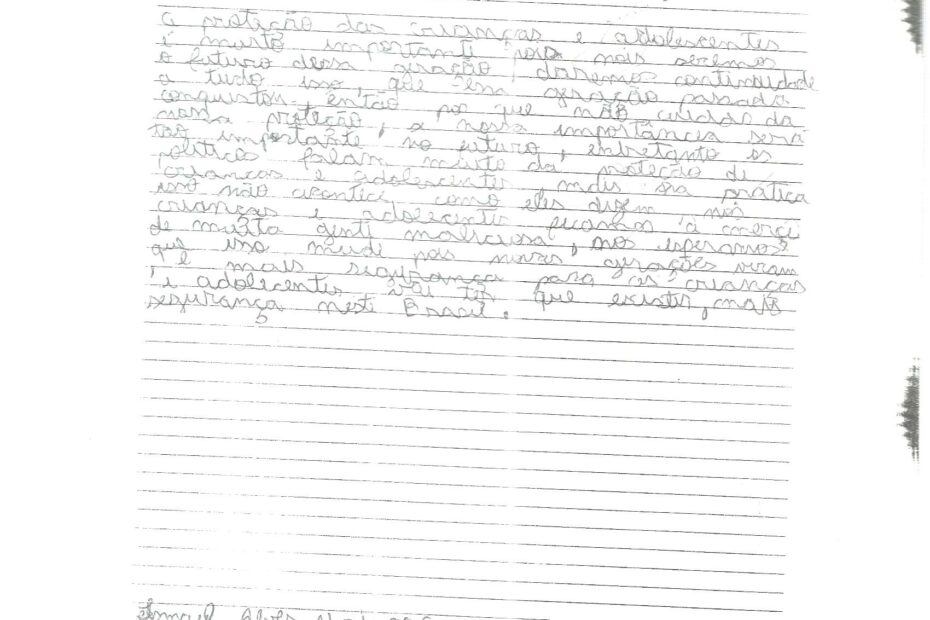 a proteção das crianças e adolescentes
é muito importante pois nois seremos
o futuro dessa geração, daremos continuidade
a tudo isso, que essa geração passada
conquistou, então por que não cuidar da
nossa proteção, a nossa importância será
tão importante no futuro, entretanto os
politicos falam muito da proteção de
crianças e adolescentes, mais na prática
isso não acontece, como eles dizem nós
crianças e adolecentes ficamos à mercê
de muita gente maliciosa, nos esperamos
que isso mude pois novas gerações viram
e mais segurança para as crianças
e adolecentes vai ter que existir, mais
segurança neste Brasil.
Alves